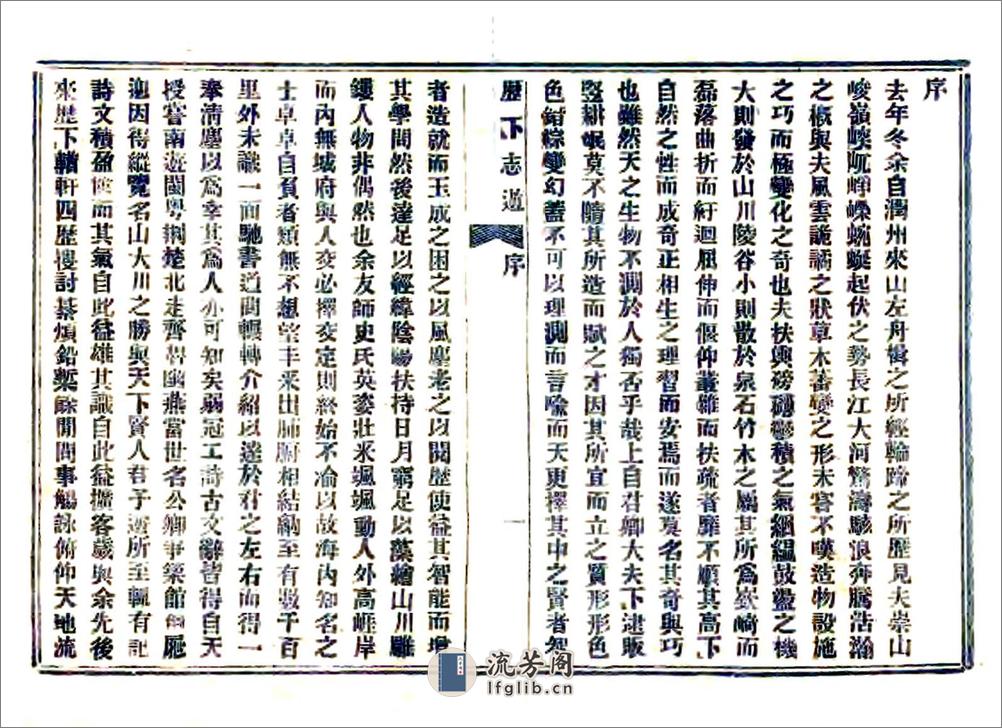 序
去年冬余自潤州來山左舟楫之所經輪蹄之所歷見夫崇山
峻嶺崚屼崢嶸蜿蜒起伏之勢長江大河驚濤駭浪奔騰浩瀚
之概與夫風雲詭譎之狀草木蕃變之形未嘗不嘆造物設施
之巧而極變化之奇也夫扶輿磅礡鬱積之氣絪縕鼓盪之機
大則發於山川陵谷小則散於泉石竹木之屬其所爲嶔崎而
磊落曲折而紆迴屈伸而偃仰叢雜而扶疏者靡不順其高下
自然之性而成奇正相生之理習而安焉而遂莫名其奇與巧
也雖然天之生物不測於人獨否乎哉上自君卿大夫下逮販
豎耕氓莫不隨其所造而賦之才因其所宜而立之質形形色
色錯綜變幻蓋不可以理測而言喻而天更擇其中之賢者智
歷下志遊 序 一
者造就而玉成之困之以風塵老之以閱歷使益其智能而增
其學問然後達足以經緯陰陽扶持日月窮足以藻繪山川雕
鏤人物非偶然也余友師史氏英姿壯采颯颯動人外高崖岸
而內無城府與人交必擇交定則終始不渝以故海內知名之
士卓卓自負者類無不想望丰采出肺腑相結納至有數千百
里外未識一面馳書通問輾轉介紹以達於君之左右而得一
奉清塵以爲幸其爲人亦可知矣弱冠工詩古文辭皆得自天
授嘗南遊閩粵荆楚北走齊晉幽燕當世名公卿爭築館倒屣
迎因得縱覽名山大川之勝與天下賢人君子遊所至輒有記
詩文積盈篋而其氣自此益雄其識自此益擴客歲與余先後
來歷下輶軒四歷搜討綦煩鉛槧餘閒間事觴詠俯仰天地流
流芳阁
lfglib.cn